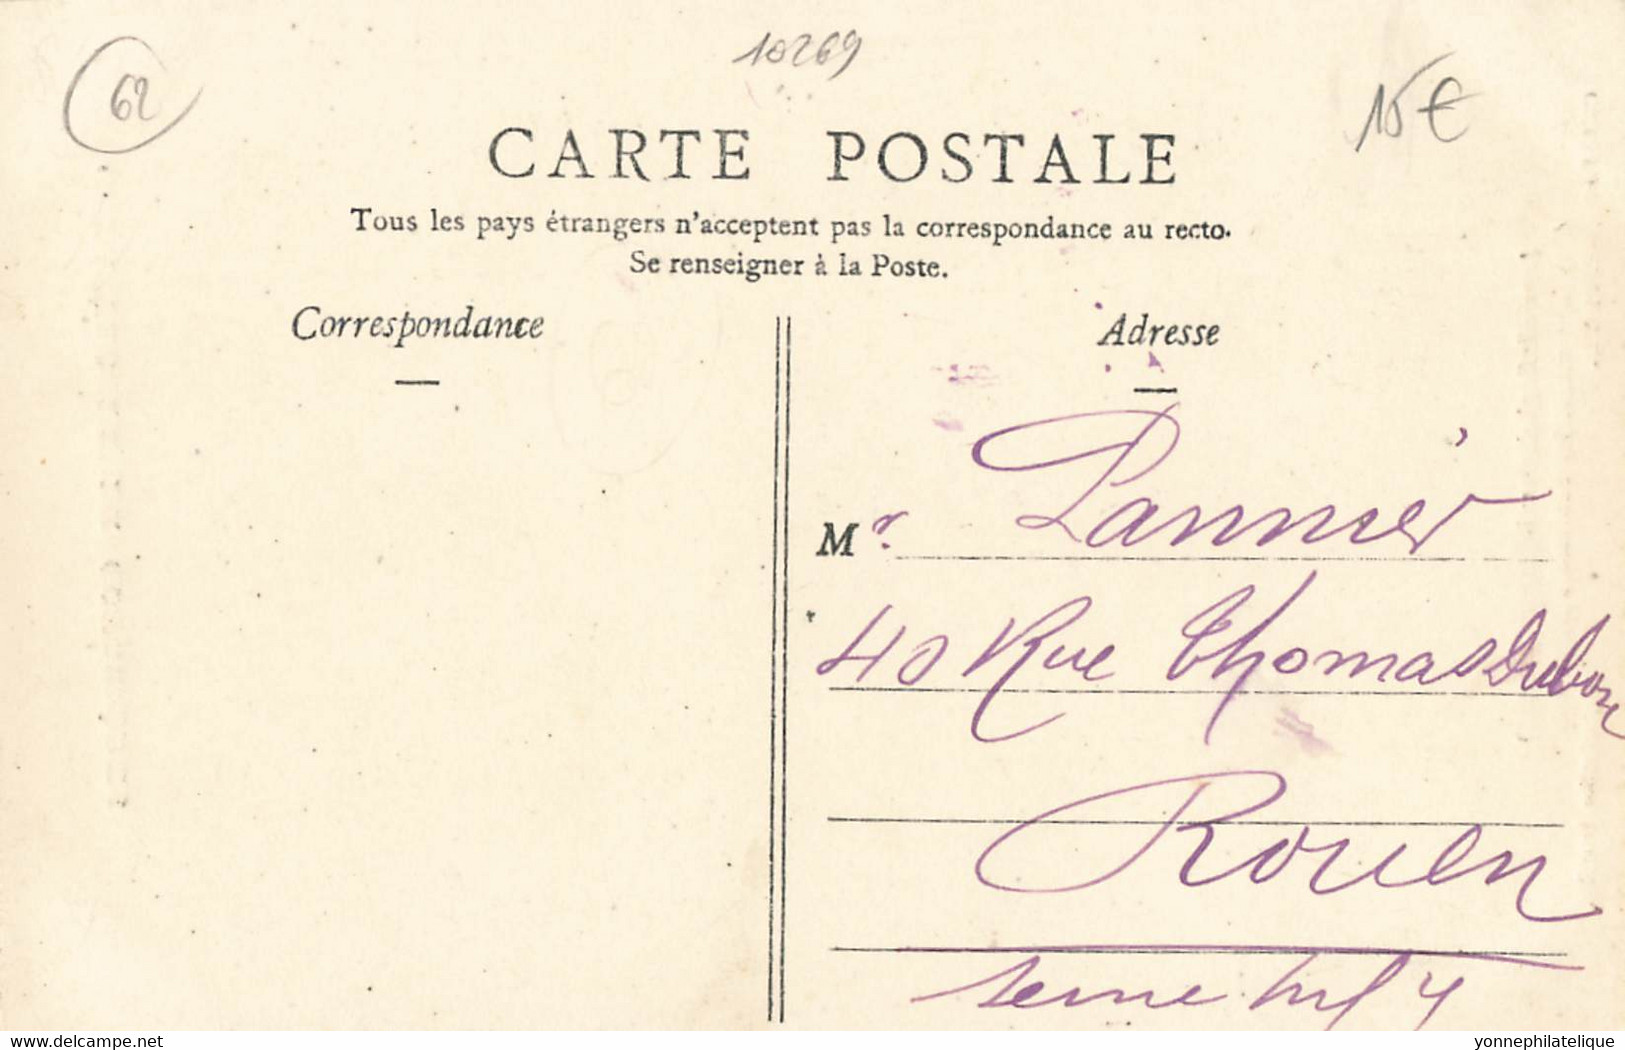 62
10269
15€
CARTE POSTALE
Tous les pays étrangers n'acceptent pas la correspondance au recto.
Se renseigner à la Poste.
Correspondance
Adresse
Mr. Pannier
40 Rue Thomas Dubosc
Rouen
Seine Inf
delcampe.net
yonnephilatelique